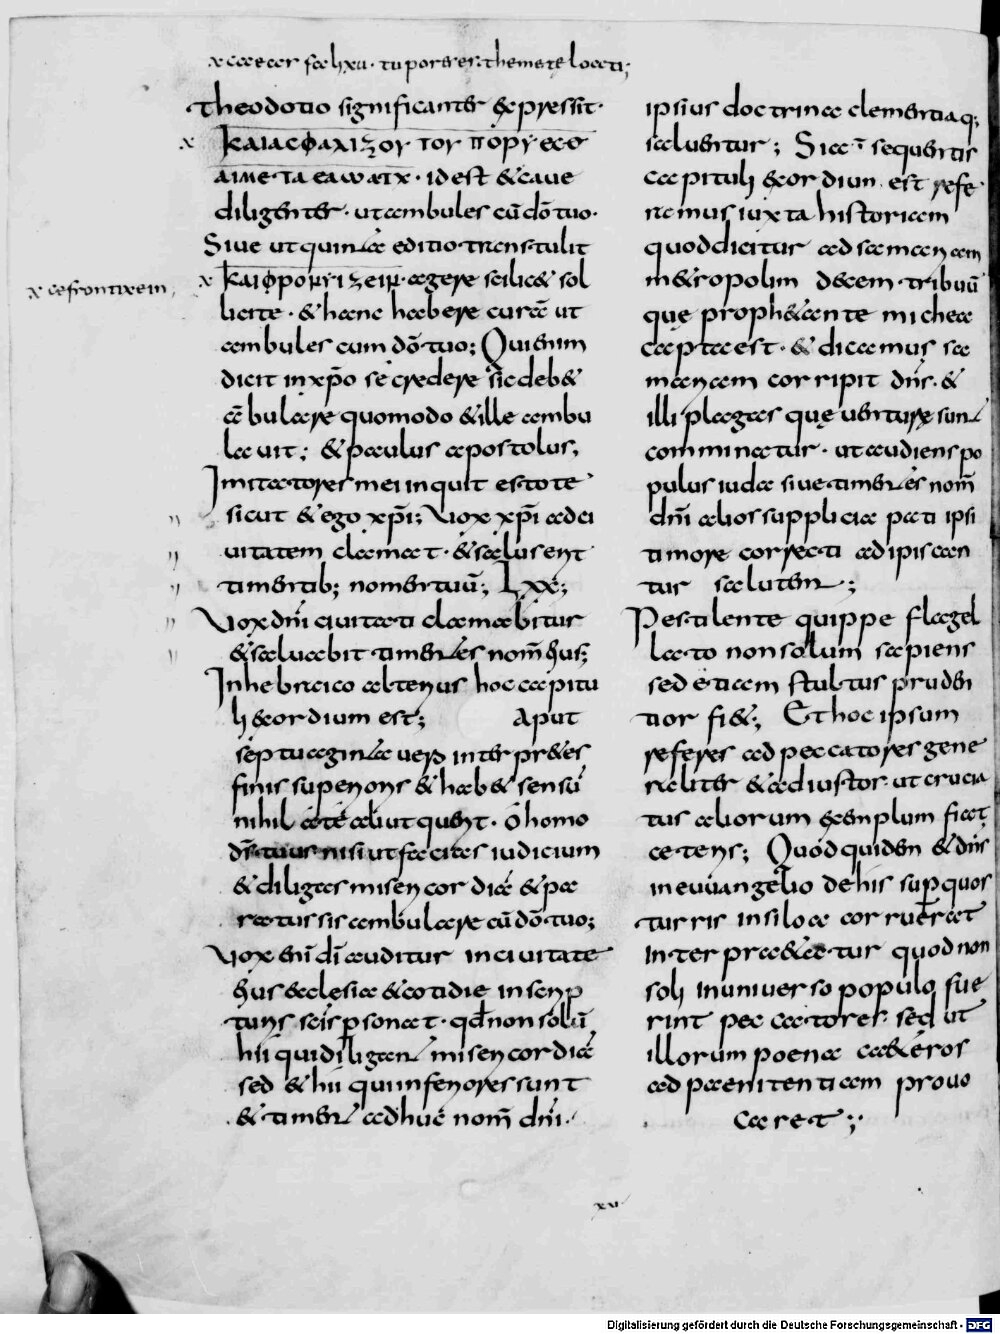 theodotio significanter &pressit·
x ΚΑΙΑСΦΑΛΙΖΟΥ ΤΟΥ ΠΟΡΥΕСΘ
id est & caue
diligenter· ut ambules cū dō tuo·
Siue ut quinta editio transtulit
x ΚΑΙΦΡΟΝΤΙΖΕΙΝ· agere scilic& sol
x cefrontixein,
licite· & hanc habere curā ut
ambules cum dō tuo; Qui enim
dicit in xp̄o se credere sic deb&
ābulare quomodo & ille ambu
lauit; & paulus apostolus,
Imitatores mei inquit estote
sicut & ego xp̄i; Uox xp̄i ad ci
uitatem clamat· & saluos erit
timentib; nomen tuū; Lxx;
Uox dn̄i ciuitati clamabitur
& saluabit timentes nom̄ eius;
In hebraico actenus hoc capitu
li exordium est; Aput
septuaginta uero interpr&es
finis superioris & hab& sensū
nihil a te aliut querit· O homo
dn̄s tuus nisi ut facias iudicium
& diligas misericordiā & pa
ratus sis ambulare cū dō tuo;
Uox eni dī auditur in ciuitate
eius &clesia & cotidie in scrip
turis scīs psonat· qđ non solū
hii qui diligant misericordiā
sed & hii qui inferiores sunt
& timent adhuc nom̄ dn̄i·
ipsius doctrina clementiaq;
saluentur; Si aū sequentis
capituli exordium est refe
ramus iuxta historiam
quod dicitur ad samariam
m&ropolim decem tribuū
quę proph&ante michea
capta est· & dicamus sa
mariam corripit dn̄s· &
illi plagas quę uenturę sunt
comminatur· ut audiens po
pulus iuda siue timentes nom̄
dn̄i alios supplicia pati ipsi
timore correcti adipiscan
tur salutem;
Pestilente quippe flagel
lato non solum sapiens
sed etiam stultus pruden
tior fi&; Et hoc ipsum
referes ad peccatores gene
raliter & ad iustos ut crucia
tus aliorum exemplum fiat
ceteris; Quod quidem & dn̄s
in euuangelio de his sup quos
turris in siloa corruerat
interpra&atur quod non
soli in uniuerso populo fue
rint peccatores sed ut
illorum poena ca&eros
ad paenitentiam prouo
caret;
xv
Digitalisierung gefördert durch die Deutsche Forschungsgemeinschaft - DFG